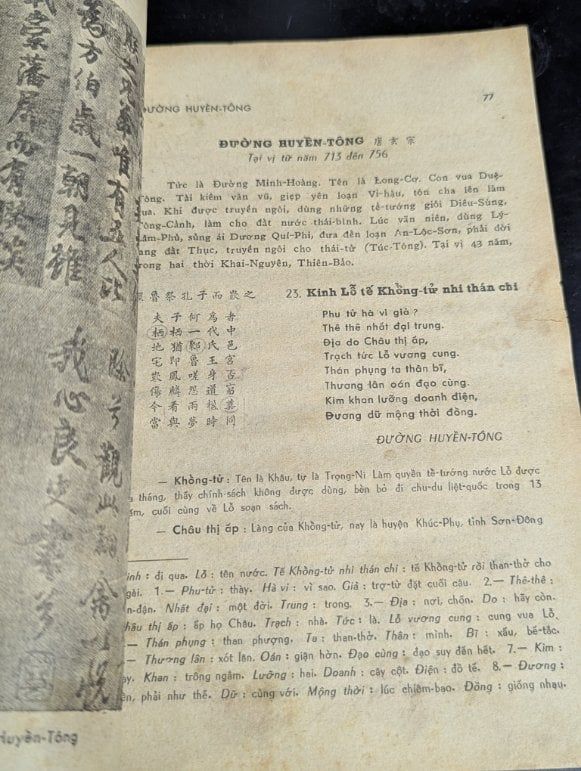 ĐƯỜNG HUYỀN-TÔNG
77
ĐƯỜNG HUYỀN-TÔNG 唐玄宗
Tại vị từ năm 713 đến 756
Tức là Đường Minh-Hoàng. Tên là Long-Cơ. Con vua Duệ-
Tông. Tài kiêm văn vũ, giẹp yên loạn Vi-hậu, tôn cha lên làm
vua. Khi được truyền ngôi, dùng những tề-tướng giỏi Diêu-Sùng,
Tống-Cảnh, làm cho đất nước thái-bình. Lúc vãn niên, dùng Lý-
Lâm-Phủ, sủng ái Dương Quí-Phi, đưa đến loạn An-Lộc-Sơn, phải dời
sang đất Thục, truyền ngôi cho thái-tử (Túc-Tông). Tại vị 43 năm,
trong hai thời Khai-Nguyên, Thiên-Bảo.
魯祭孔子而嘆之
夫子何為者
栖栖一代中
地猶鄹氏邑
宅即魯王宮
嘆鳳嗟身否
傷麟怨道窮
今看兩楹奠
當與夢時同
23. Kinh Lỗ tế Khổng-tử nhi thán chi
Phu tử hà vi giả ?
Thê thê nhất đại trung.
Địa do Châu thị ấp,
Trạch tức Lỗ vương cung.
Thán phụng ta thân bĩ,
Thương lân oán đạo cùng.
Kim khan lưỡng doanh điện,
Đương dữ mộng thời đồng.
ĐƯỜNG HUYỀN-TÔNG
— Khổng-tử : Tên là Khâu, tự là Trọng-Ni Làm quyền tề-tướng nước Lỗ được
tháng, thấy chính-sách không được dùng, bèn bỏ đi chu-du liệt-quốc trong 13
năm, cuối cùng về Lỗ soạn sách.
— Châu thị ấp : Làng của Khổng-tử, nay là huyện Khúc-Phụ, tỉnh Sơn-Đông
Kinh : đi qua. Lỗ : tên nước. Tế Khổng-tử nhi thán chi : tế Khổng-tử rồi than-thở cho
ngài. 1.— Phu-tử : thày. Hà vi : vì sao. Giả : trợ-từ đặt cuối câu. 2.— Thê-thê :
Nhất đại : một đời. Trung : trong. 3.— Địa : nơi, chốn. Do : hãy còn.
Châu thị ấp : ấp họ Châu. Trạch : nhà. Tức : là. Lỗ vương cung : cung vua Lỗ.
— Thán phụng : than phượng. Ta : than-thở. Thân : mình. Bĩ : xấu, bế-tắc.
— Thương lân : xót lân. Oán : giận hờn. Đạo cùng : đạo suy đến hết. 7.— Kim :
nay. Khan : trông ngắm. Lưỡng : hai. Doanh : cây cột. Điện : đồ tế. 8.— Đương :
nên, phải như thế. Dữ : cùng với. Mộng thời : lúc chiêm-bao. Đồng : giống nhau.
Huyền-Tông